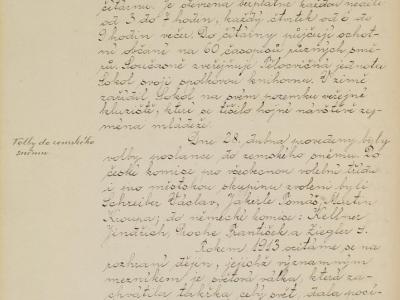 čítárnu. Je otevřena bezplatně každou neděli
od 3 do 7 hodin, každý čtvrtek od 6 do
9 hodin večer. Do čítárny půjčují ochot-
ní občané na 60 časopisů různých smě-
rů. Současně zveřejňuje Tělocvičná jednota
Sokol svoji spolkovou knihovnu. V zimě
zařídil Sokol, na svém pozemku veřejné
kluziště, které se těšilo hojné návštěvě zej-
ména mládeže.
Volby do zemského
sněmu.
Dne 28. dubna provedeny byly
volby poslance do zemského sněmu. Za
české komise pro všeobecnou volební třídu
i pro městskou skupinu zvoleni byli
Schreiber Václav, Jakerle Tomáš, Martin
Kroupa; do německé komise: Kellner
Jindřich, Roche František a Ziegler J.
Rokem 1913 ocitáme se na
rozhraní dějin, jejichž významným
mezníkem je světová válka, která za-
chvátila takřka celý svět, stala